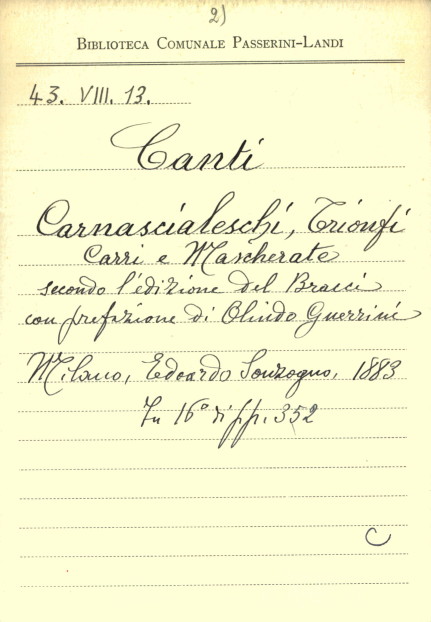 2)
BIBLIOTECA COMUNALE PASSERINI-LANDI
43. VIII. 13.
Canti
Carnascialeschi, Trionfi
Carri e Mascherate
secondo l'edizione del Bracci
con prefazione di Olindo Guerrini
Milano, Edoardo Sonzogno, 1883
In 16° di pp. 352
C